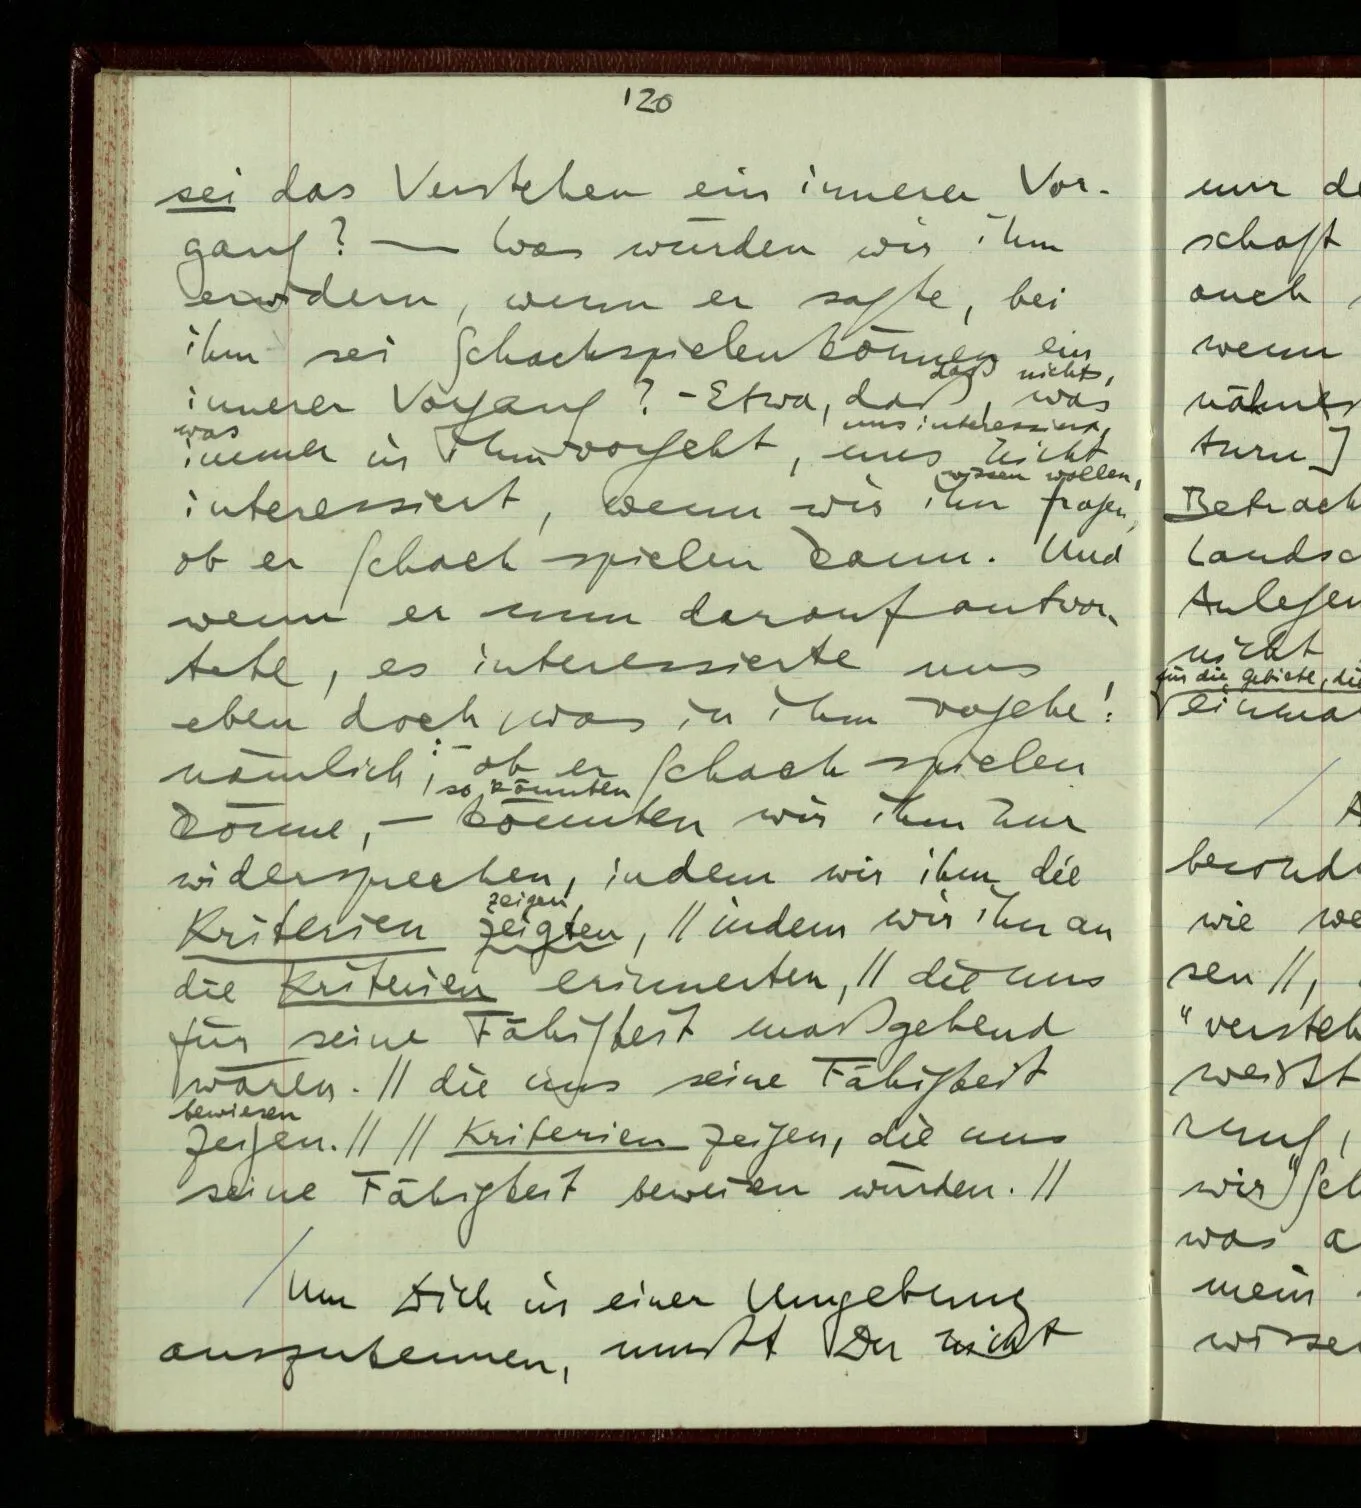 120
sei das Verstehen ein innerer Vor-
gang? — Was würden wir ihm
erwidern, wenn er sagte, bei
ihm sei Schachspielenkönnen ein
daß nichts,
innerer Vorgang? - Etwa, daß, was
was uns interessiert,
immer in ihm vorgeht, uns nicht
wissen wollen,
interessiert, wenn wir ihn fragen,
ob er Schach spielen kann. Und
wenn er nun darauf antwor-
tete, es interessierte uns
eben doch, was in ihm vorgehe!
nämlich: ob er Schach spielen
so könnten
könne, — könnten wir ihm nur
widersprechen, indem wir ihm die
zeigen,
Kriterien zeigten, // indem wir ihn an
die Kriterien erinnerten, // die uns
für seine Fähigkeit maßgebend
wären. // die uns seine Fähigkeit
bewiesen
zeigen. // // Kriterien zeigen, die uns
seine Fähigkeit beweisen würden. //
/ Um Dich in einer Umgebung
auszukennen, mußt Du nicht
nur de
schaft
auch
wenn
turn]
Betrach
Landsc
Anlegen
nicht
für die Gebiete, die
einma
/ A
besonde
wie we
sen //,
"versteh
weißt
wir" Sch
was a
mein
wisse